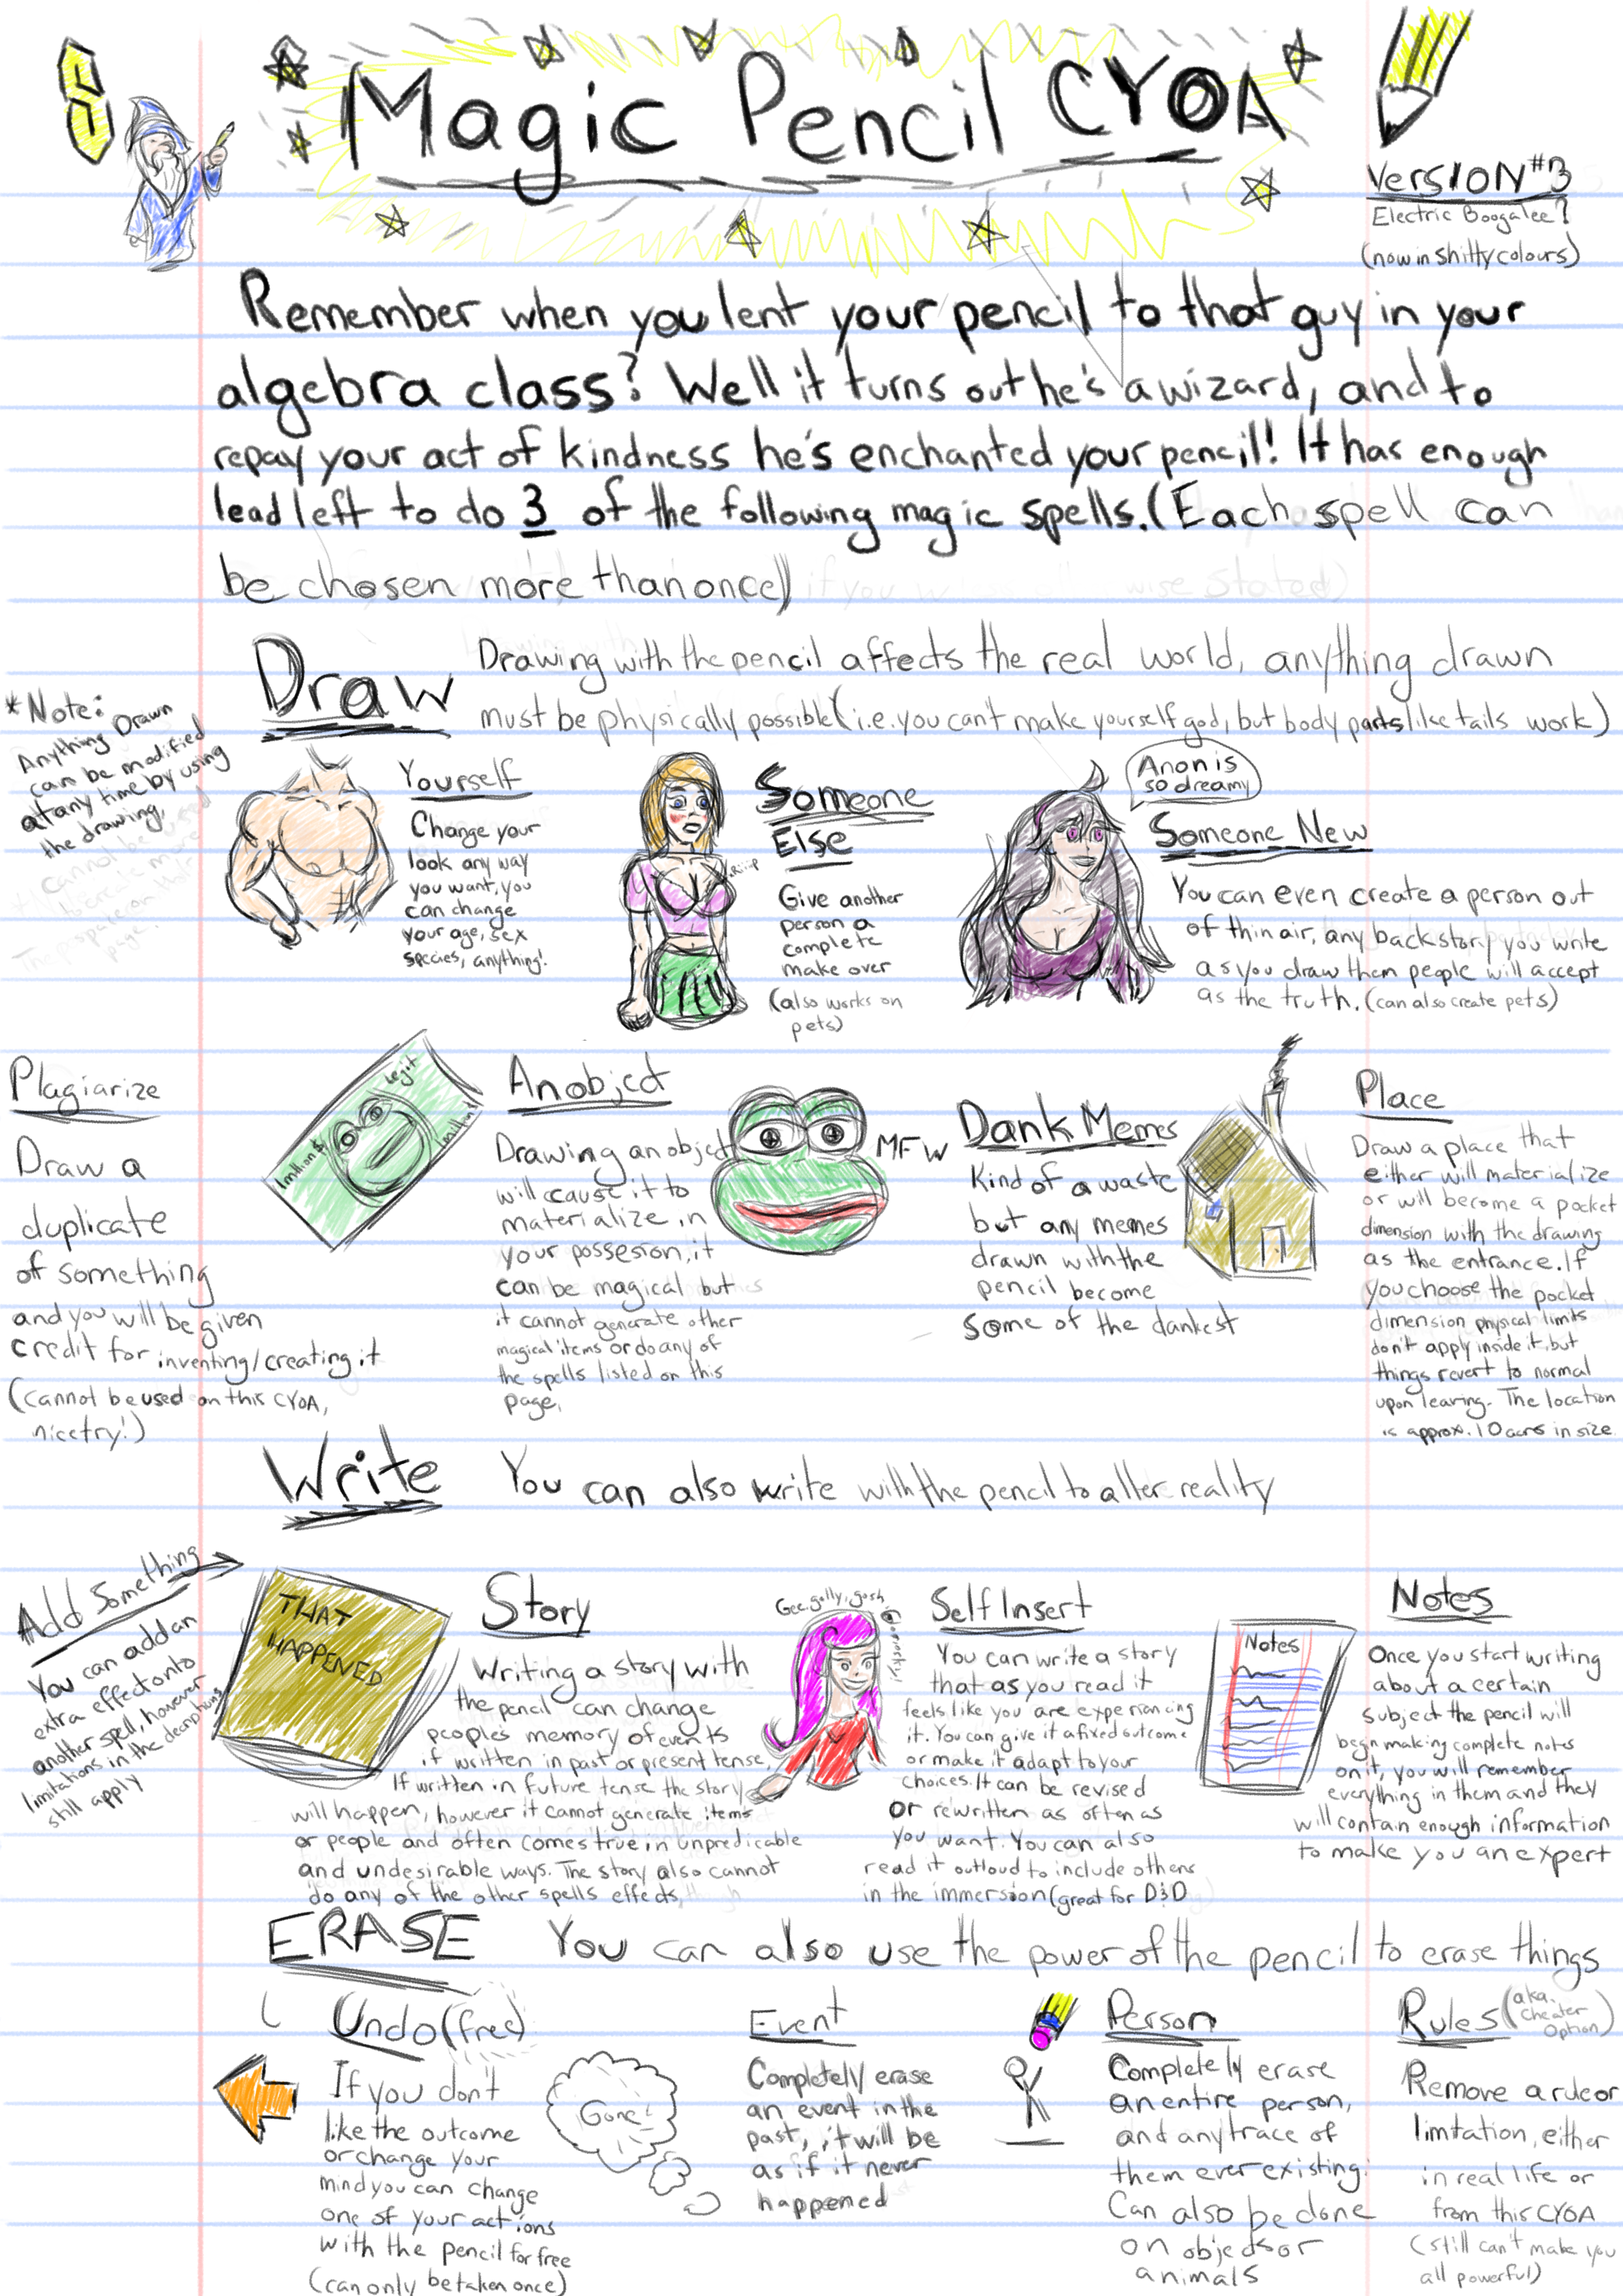 Magic Pencil CYOA
VERSION #3
Electric Boogalee?
(now in shitty colours)
Remember when you lent your pencil to that guy in your
algebra class? Well it turns out he's a wizard, and to
repay your act of kindness he's enchanted your pencil! It has enough
lead left to do 3 of the following magic spells. (Each spell can
be chosen more than once)
Draw
Drawing with the pencil affects the real world, anything drawn
must be physically possible (i.e. you can't make yourself god, but body parts like tails work)
*Note:
Anything Drawn
can be modified
at any time by using
the drawing,
Yourself
Change your
look any way
you want, you
can change
your age, sex
species, anything!
Riiip
Someone
Else
Give another
person a
complete
make over
(also works on
pets)
Anon is
so dreamy
Someone New
You can even create a person out
of thin air, any backstory you write
as you draw them people will accept
as the truth. (can also create pets)
Plagiarize
Draw a
duplicate
of something
and you will be given
credit for inventing/creating it
(cannot be used on this CYOA,
nice try!)
legit
1million$
1million$
An object
Drawing an object
will cause it to
materialize in
your possesion, it
can be magical but
it cannot generate other
magical items or do any of
the spells listed on this
page.
MFW
Dank Memes
Kind of a waste
but any memes
drawn with the
pencil become
some of the dankest
Place
Draw a place that
either will materialize
or will become a pocket
dimension with the drawing
as the entrance. If
you choose the pocket
dimension physical limits
don't apply inside it, but
things revert to normal
upon leaving. The location
is approx. 10 acres in size.
Write
You can also write with the pencil to alter reality
Add Something
You can add an
extra effect onto
another spell, however
limitations in the decriptions
still apply
THAT
HAPPENED
Story
Writing a story with
the pencil can change
peoples memory of events
if written in past or present tense,
If written in future tense the story
will happen, however it cannot generate items
or people and often comes true in unpredicable
and undesirable ways. The story also cannot
do any of the other spells effects,
Gee, golly, gosh
Self Insert
You can write a story
that as you read it
feels like you are experiancing
it. You can give it a fixed outcome
or make it adapt to your
choices. It can be revised
or rewritten as often as
you want. You can also
read it outloud to include others
in the immersion (great for D&D
Notes
Notes
Once you start writing
about a certain
subject the pencil will
begin making complete notes
on it, you will remember
everything in them and they
will contain enough information
to make you an expert
ERASE
You can also use the power of the pencil to erase things
Undo (free)
If you don't
like the outcome
or change your
mind you can change
one of your actions
with the pencil for free
(can only be taken once)
Gone!
Event
Completely erase
an event in the
past, it will be
as if it never
happened
Person
Completely erase
an entire person,
and any trace of
them ever existing.
Can also be done
on objects or
animals
Rules (aka. Cheater Option)
Remove a rule or
limitation, either
in real life or
from this CYOA
(still can't make you
all powerful)